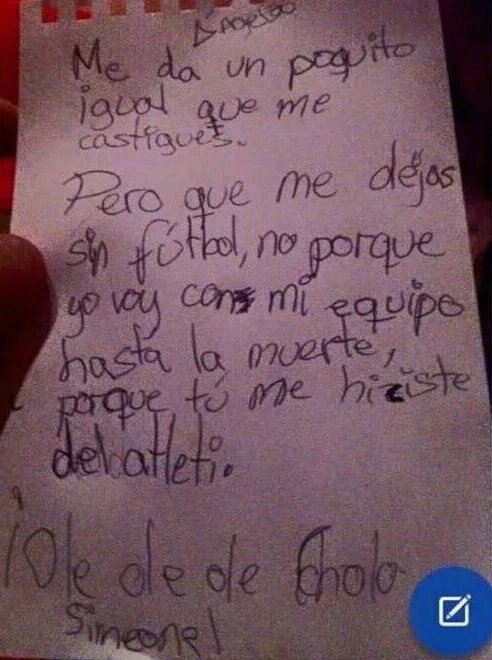 Me da un poquito
igual que me
castigues.
Pero que me dejas
sin fútbol, no porque
yo voy con mi equipo
hasta la muerte,
porque tú me hiciste
del atleti.
¡Ole ole ole Cholo
Simeone!